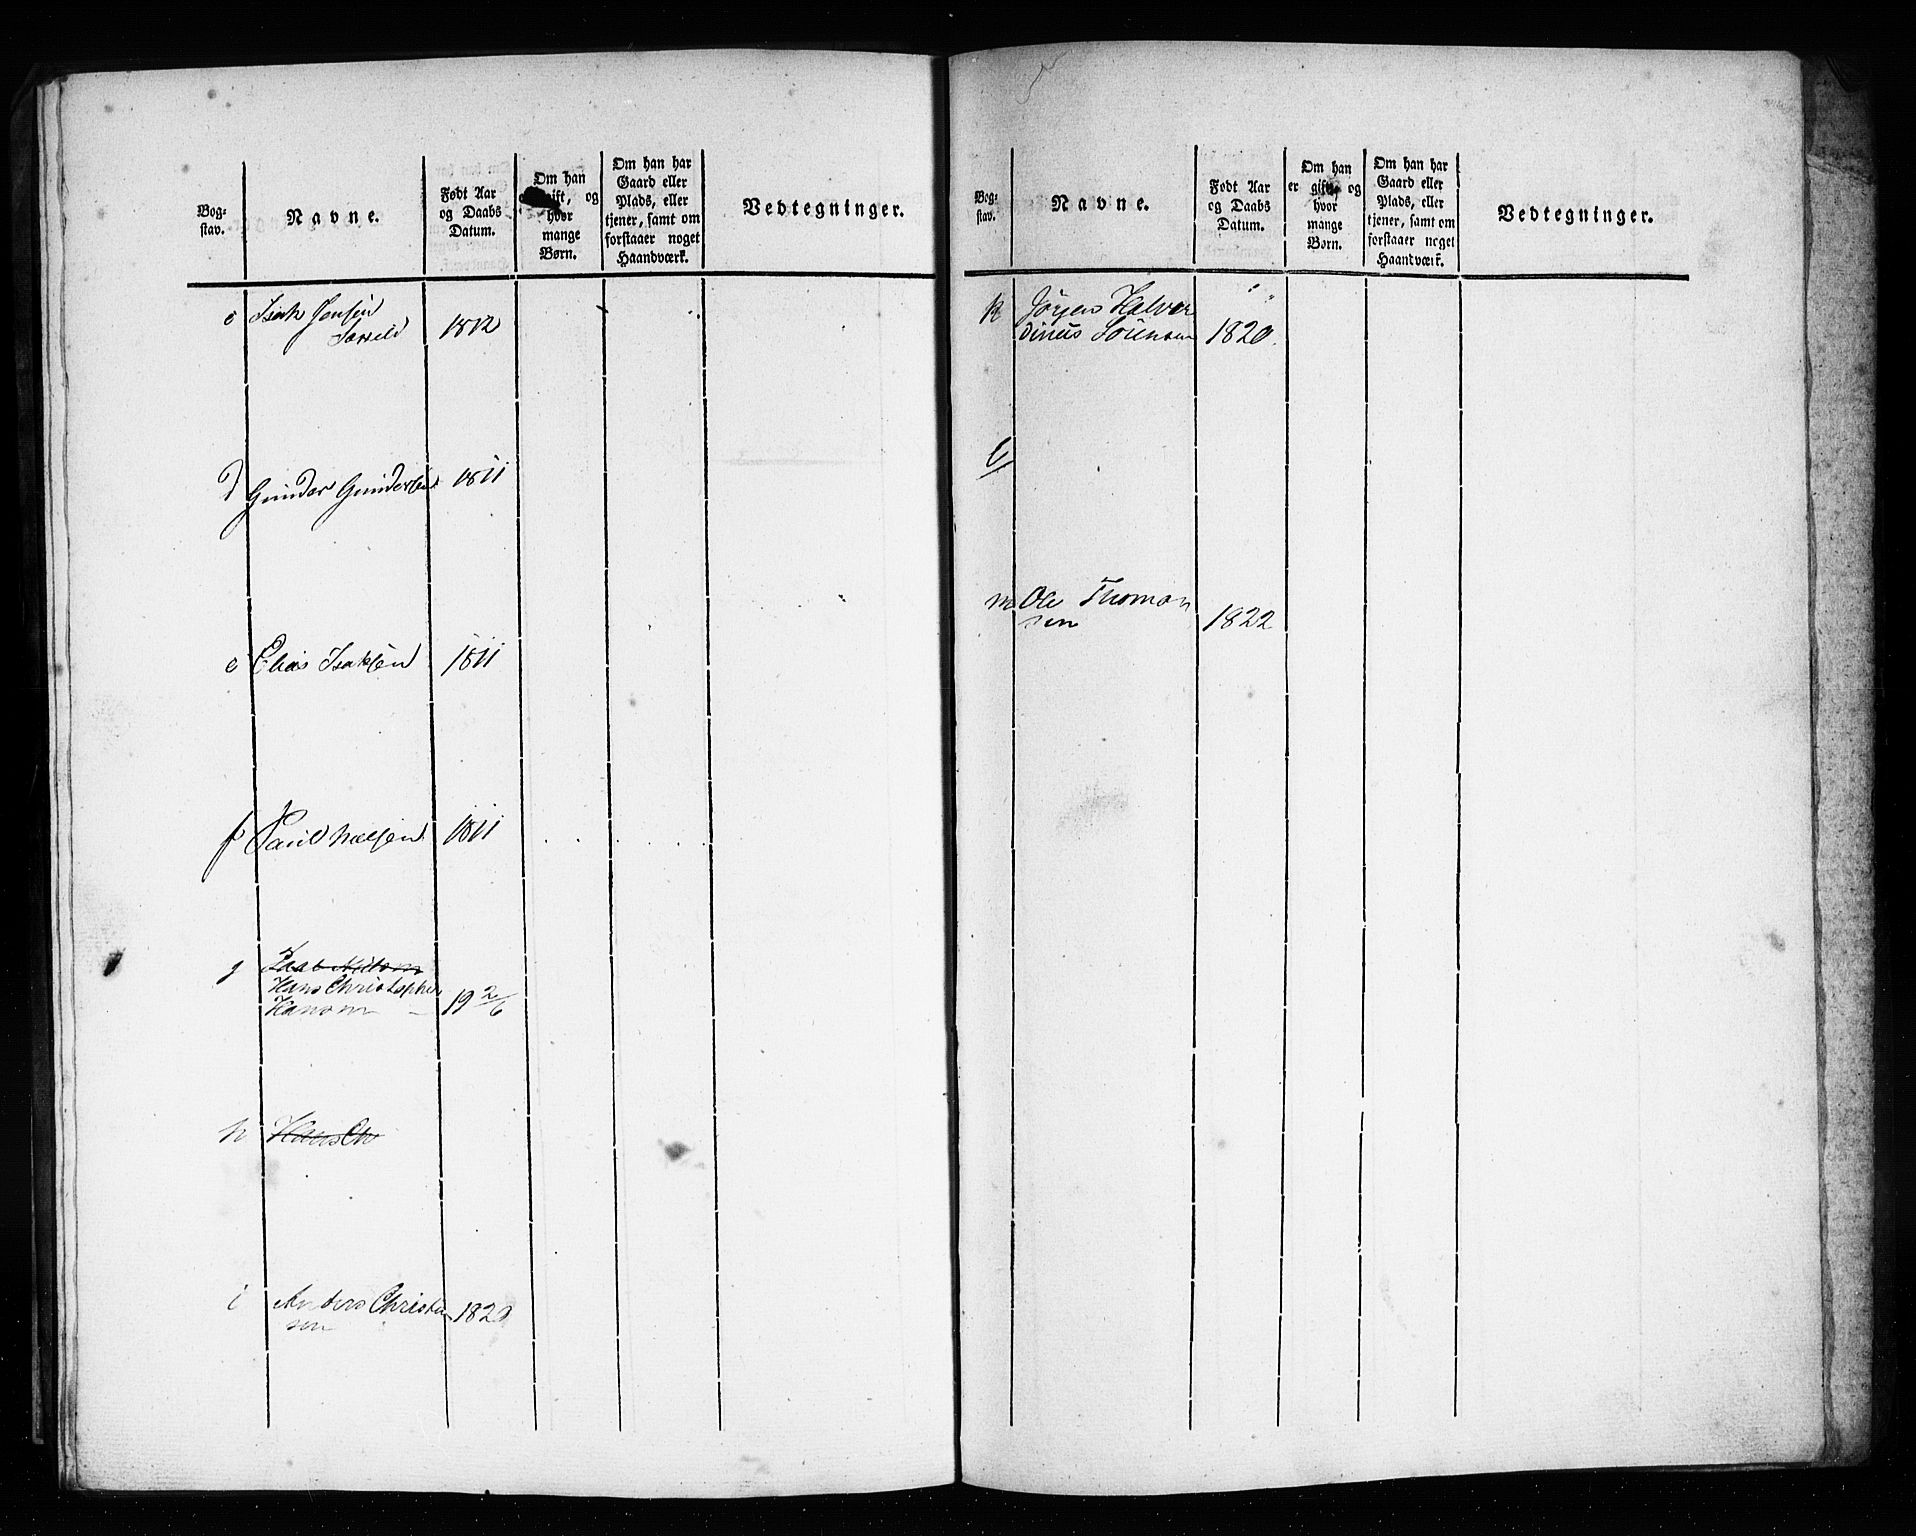 Bog-
stav.
Navne.
Født Aar
og Daabs
Datum.
Om han
gift, og
hvor
mange
Børn.
Om han har
Gaard eller
Plads, eller
tjener, samt om
forstaaer noget
Haandværk.
Vedtegninger.
c Isach Jensen
1812
D Gunder Gundersen 1811
e Elias Isaksen 1811
f Paul Nielsen 1811
g
Hans Christopher
Hansen 19 2/6
h Hans Ch
i Anders Christen 1820
sen
Bog-
stav.
Navne.
Født Aar
og Daabs
Datum.
Om han
er gift, og
hvor
mange
Børn.
Om han har
Gaard eller
Plads, eller
tjener, samt om
forstaaer noget
Haandværk.
Vedtegninger.
k Jörgen Halvor
dinus Sörensen 1820.
l
m Ole Thomas
sen 1822